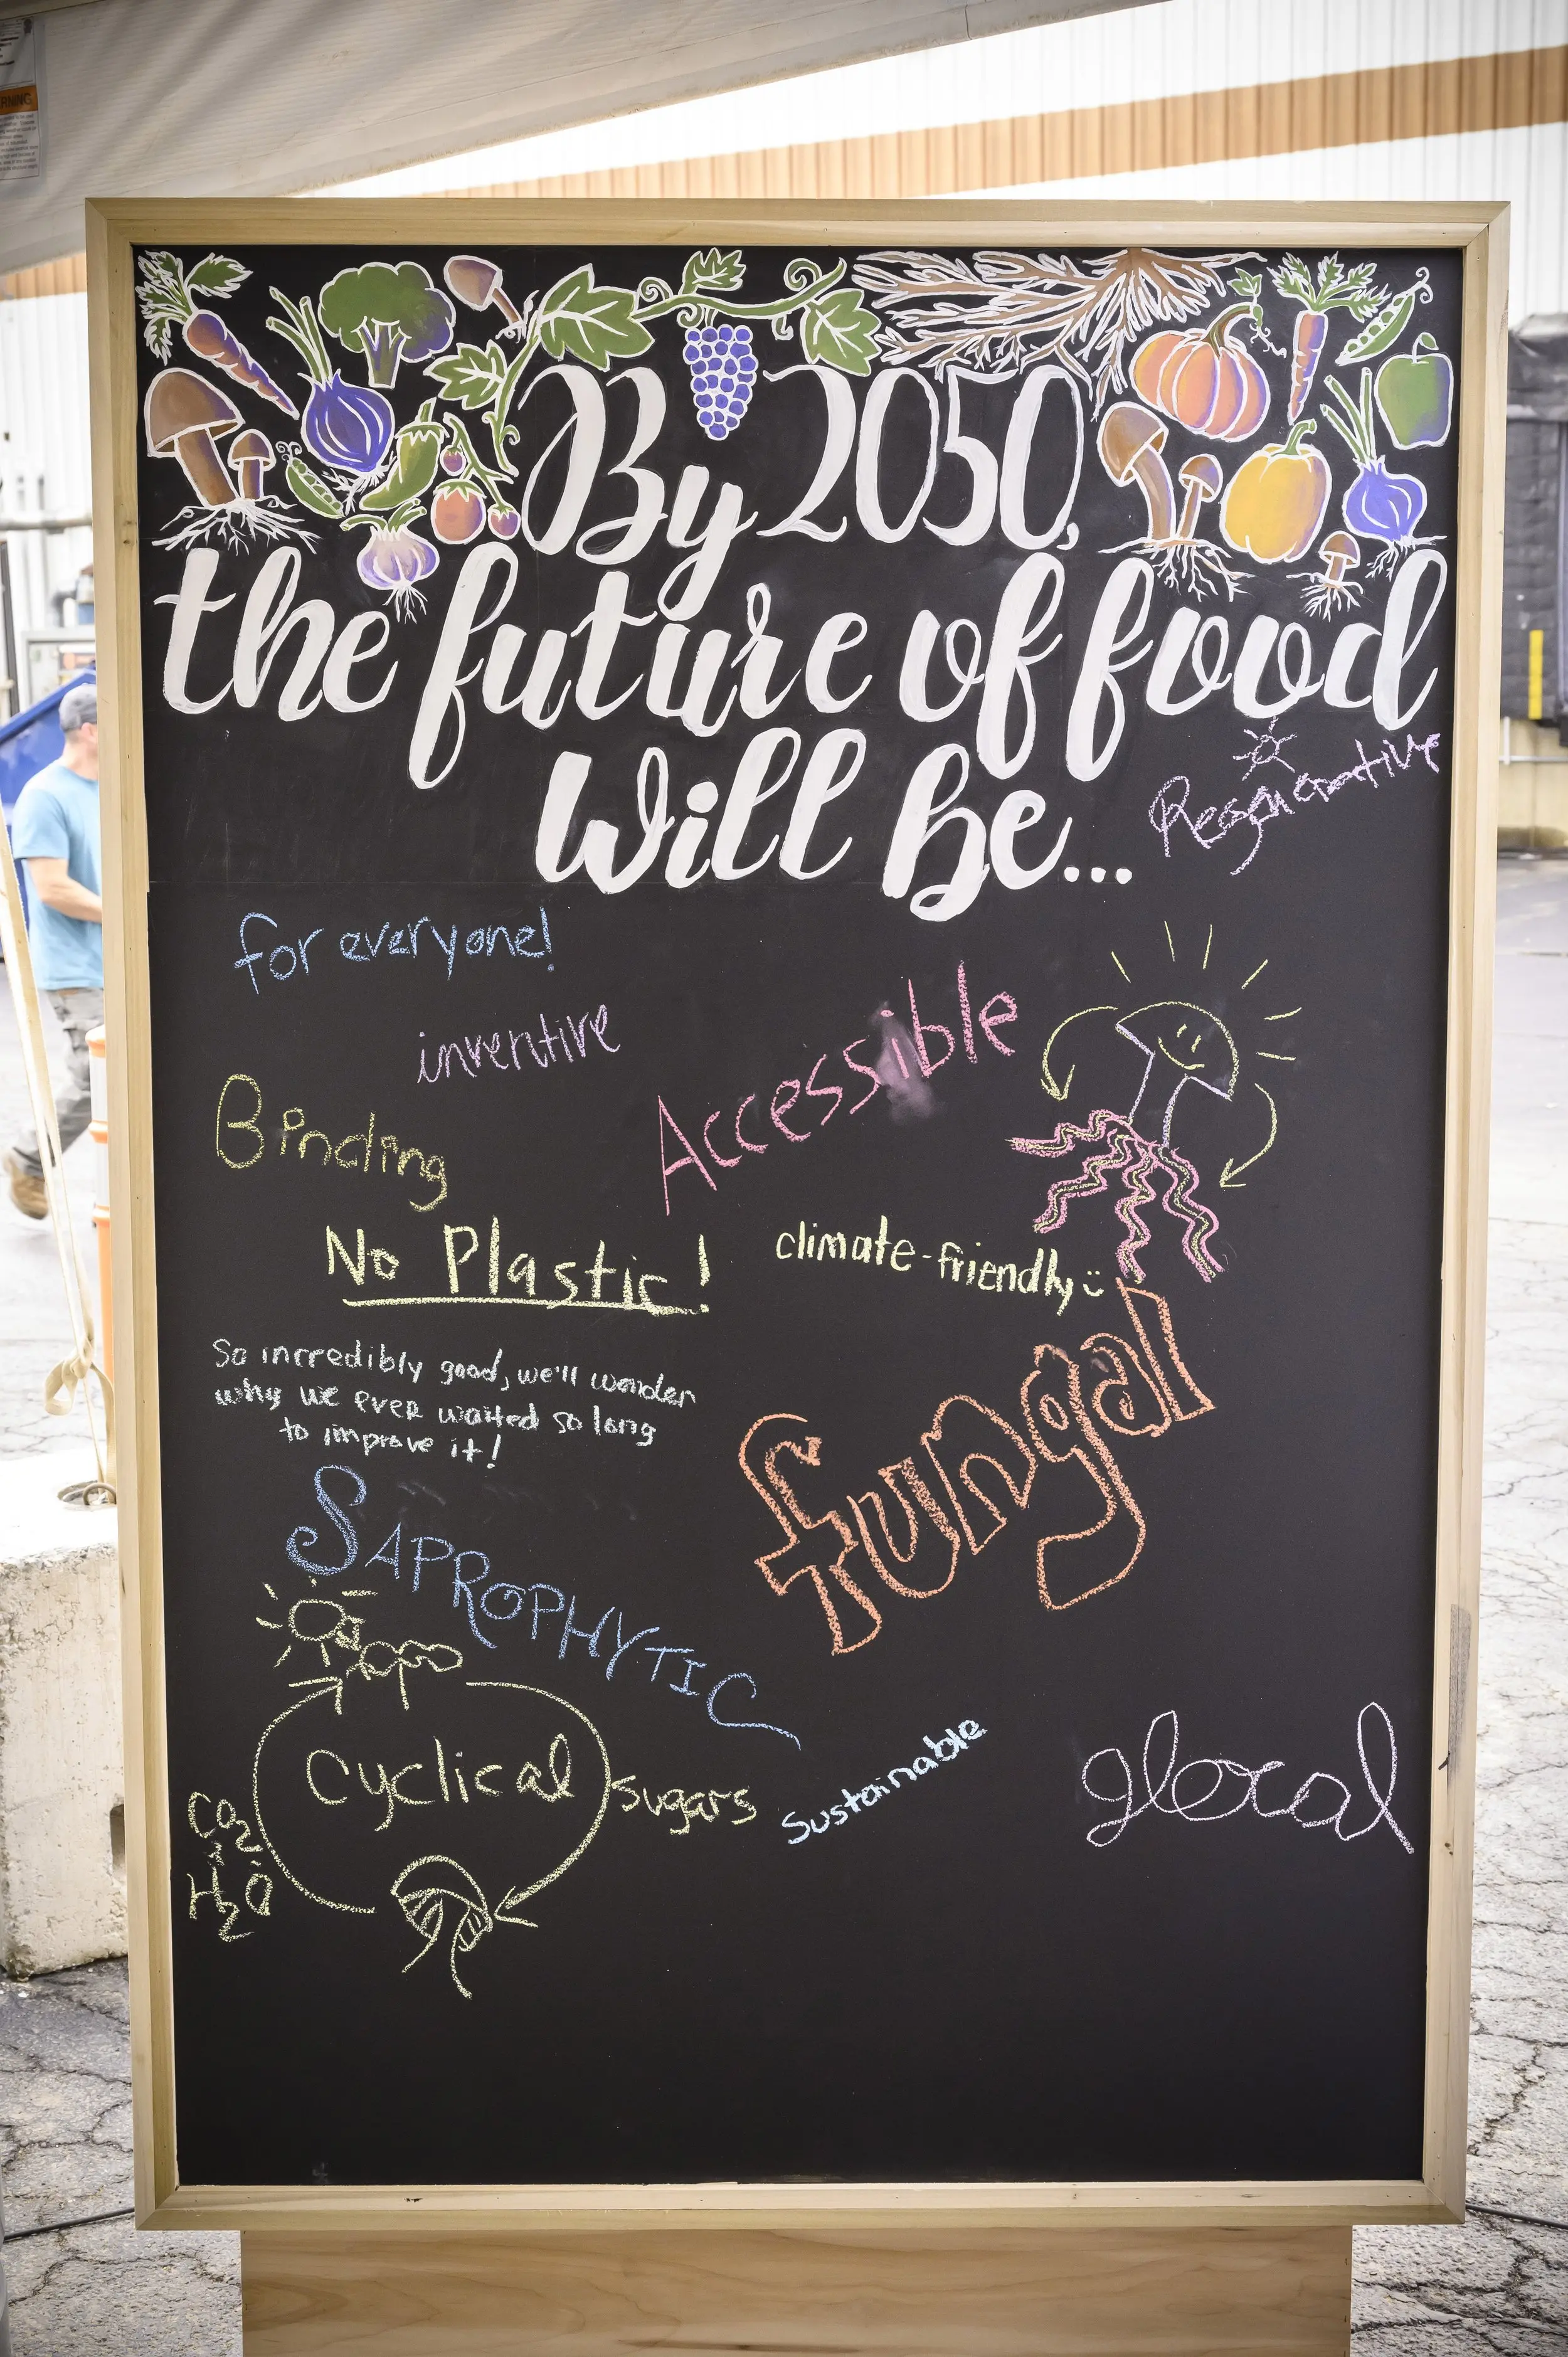 RNING
By 2050,
the future of food
will be...
Regenerative
for everyone!
inventive
Accessible
Binding
No Plastic!
climate-friendly
So incredibly good, we'll wonder
why we ever waited so long
to improve it!
fungal
SAPROPHYTIC
Cyclical
sugars
CO2
H2O
Sustainable
glocal